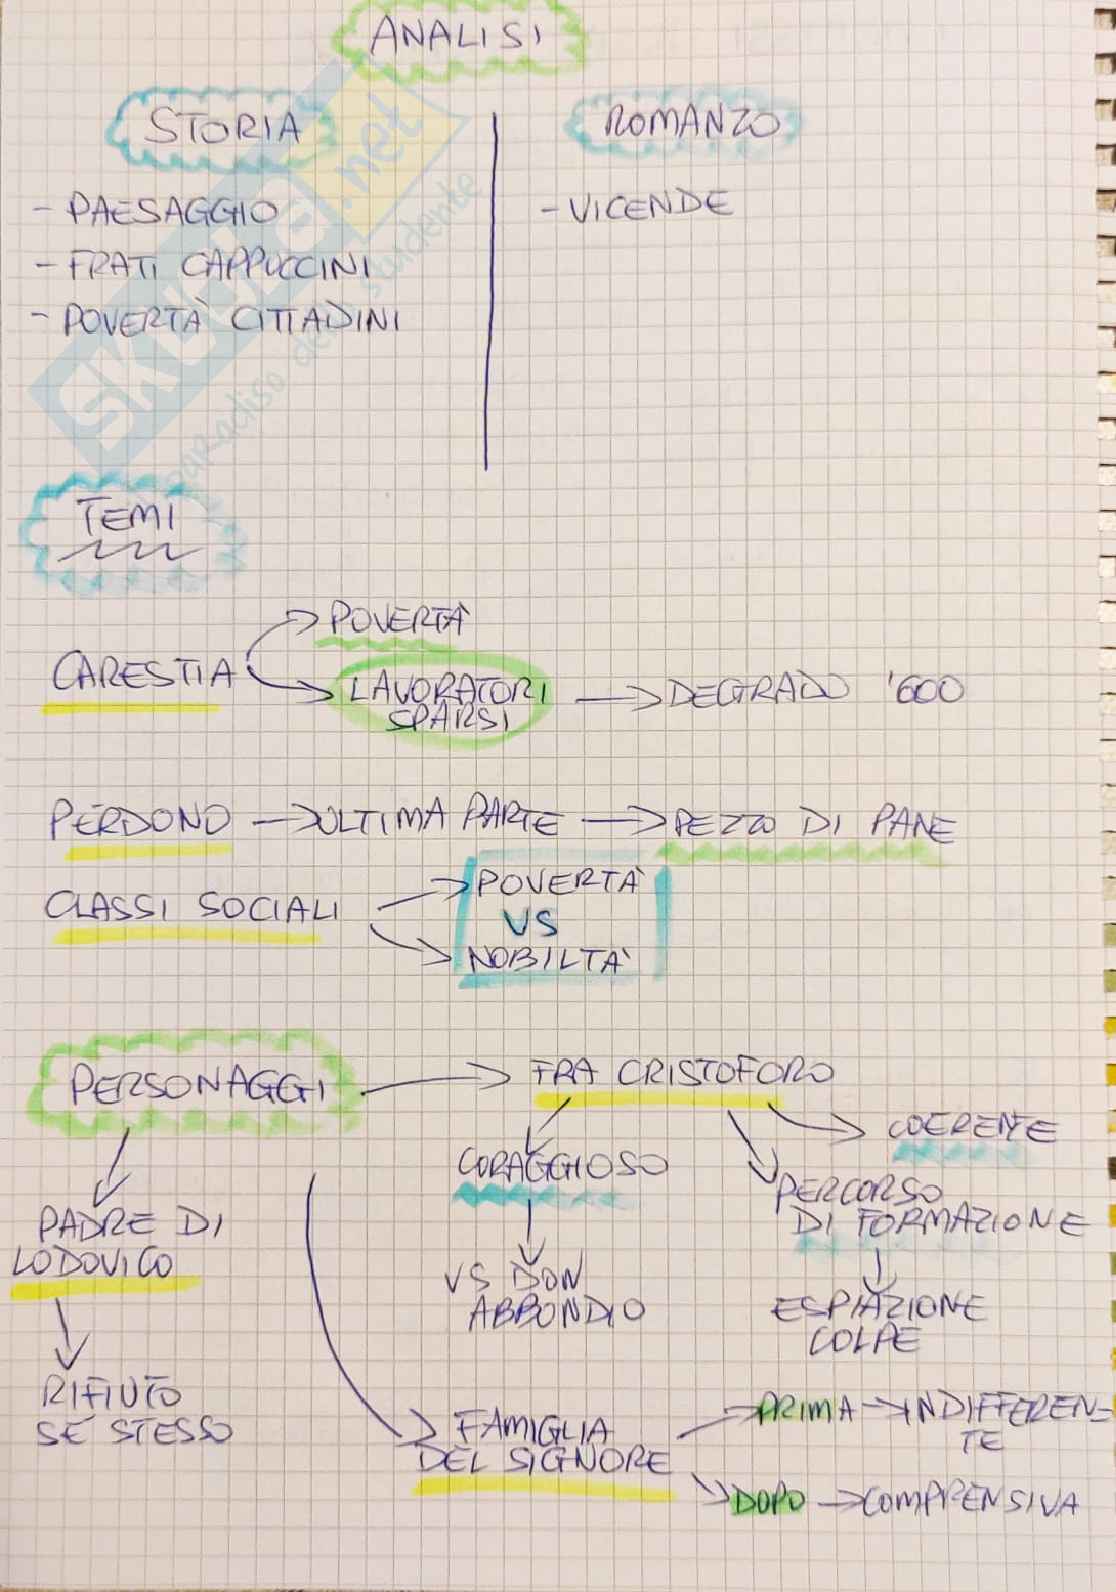 ANALISI
STORIA
- PAESAGGIO
- FRATI CAPPUCCINI
- POVERTÀ CITTADINI
ROMANZO
- VICENDE
SKUOLA.net
paradiso dello studente
TEMI
CARESTIA
POVERTÀ
LAVORATORI
SPARSI
DEGRADO '600
PERDONO → ULTIMA PARTE → PEZZO DI PANE
CLASSI SOCIALI
POVERTÀ
VS
NOBILTÀ
PERSONAGGI → FRA CRISTOFORO
COERENTE
CORAGGIOSO
PERCORSO
DI FORMAZIONE
PADRE DI
LODOVICO
VS DON
ABBONDIO
ESPIAZIONE
COLPE
RIFIUTO
SE STESSO
FAMIGLIA
DEL SIGNORE
PRIMA → INDIFFEREN-
TE
DOPO → COMPRENSIVA